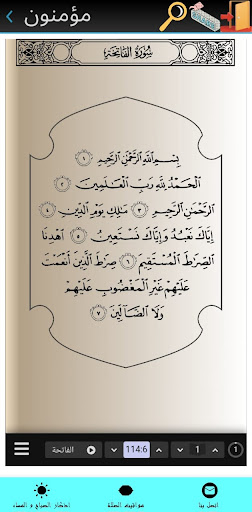 مؤمنون
سُورَةُ الفَاتِحَةِ
بِسْمِ ٱللَّهِ ٱلرَّحْمَٰنِ ٱلرَّحِيمِ ١
ٱلْحَمْدُ لِلَّهِ رَبِّ ٱلْعَٰلَمِينَ ٢
ٱلرَّحْمَٰنِ ٱلرَّحِيمِ ٣ مَٰلِكِ يَوْمِ ٱلدِّينِ ٤
إِيَّاكَ نَعْبُدُ وَإِيَّاكَ نَسْتَعِينُ ٥ ٱهْدِنَا
ٱلصِّرَٰطَ ٱلْمُسْتَقِيمَ ٦ صِرَٰطَ ٱلَّذِينَ أَنْعَمْتَ
عَلَيْهِمْ غَيْرِ ٱلْمَغْضُوبِ عَلَيْهِمْ
وَلَا ٱلضَّآلِّينَ ٧
الفاتحة 114:6 1
اتصل بنا مواقيت الصلاة اذكار الصباح و المساء